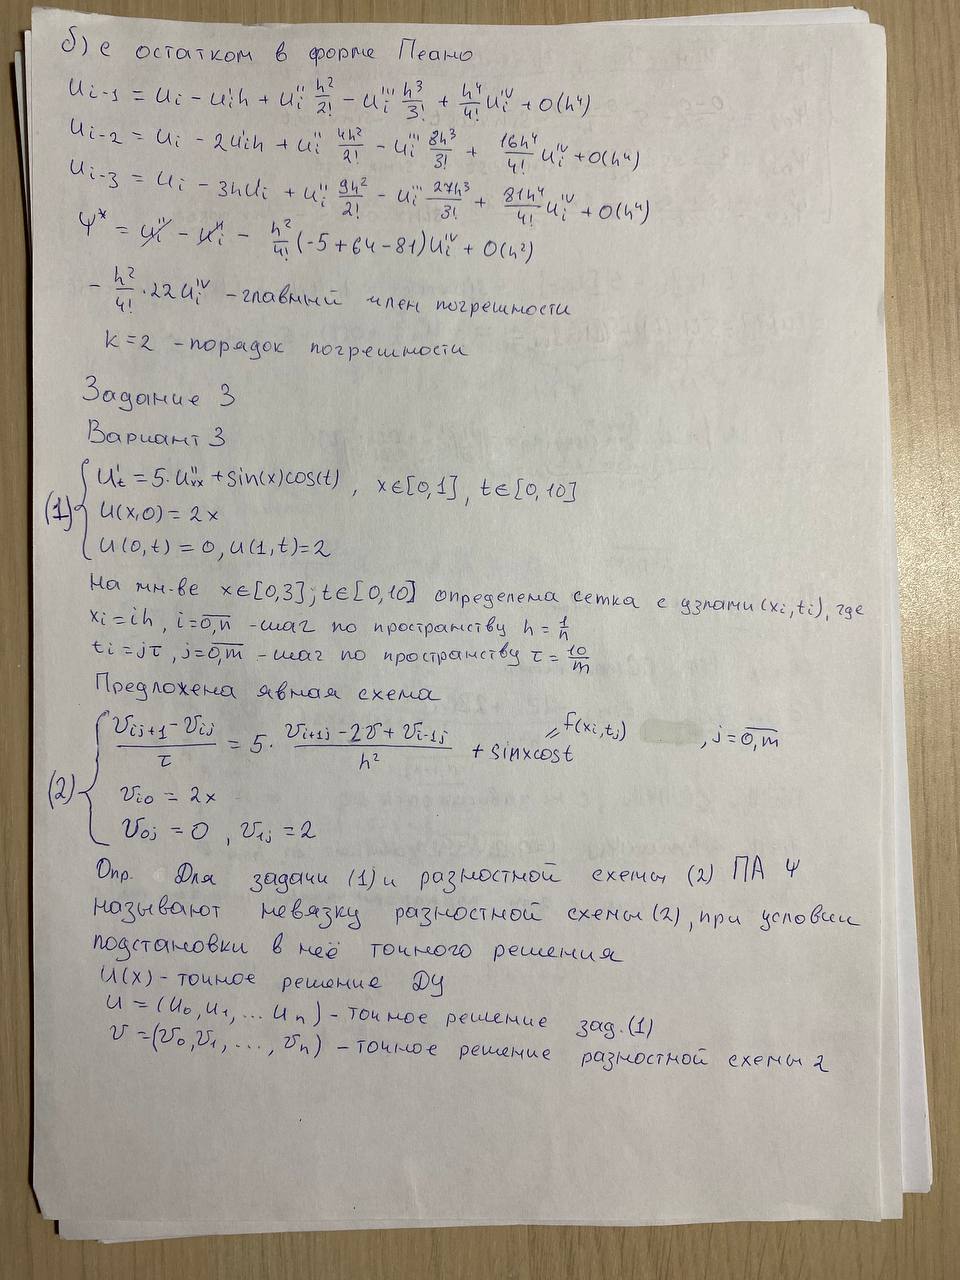 б) с остатком в форме Пеано
u_{i-1} = u_i - u_i'h + u_i'' h²/2! - u_i''' h³/3! + h⁴/4! u_i^{IV} + O(h⁴)
u_{i-2} = u_i - 2u_i'h + u_i'' 4h²/2! - u_i''' 8h³/3! + 16h⁴/4! u_i^{IV} + O(h⁴)
u_{i-3} = u_i - 3hu_i + u_i'' 9h²/2! - u_i''' 27h³/3! + 81h⁴/4! u_i^{IV} + O(h⁴)
Ψ* = u_i'' - u_i'' - h²/4! (-5+64-81)u_i^{IV} + O(h²)
- h²/4! · 22u_i^{IV} - главный член погрешности
k=2 - порядок погрешности
Задание 3
Вариант 3
(1) { u_t' = 5·u_{xx}'' + sin(x)cos(t), x∈[0,1], t∈[0,10]
u(x,0) = 2x
u(0,t) = 0, u(1,t)=2
на мн-ве x∈[0,3]; t∈[0,10] определена сетка с узлами (x_i,t_i), где
x_i=ih, i=\overline{0,n} - шаг по пространству h = 1/n
t_i=jτ, j=\overline{0,m} - шаг по пространству τ = 10/m
Предложена явная схема
(2) { (v_{ij+1} - v_{ij})/τ = 5· (v_{i+1j} - 2v + v_{i-1j})/h² + sinxcost = f(x_i,t_j), j=\overline{0,m}
v_{i0} = 2x
v_{0j} = 0, v_{1j} = 2
Опр. Для задачи (1) и разностной схемы (2) ПА Ψ
называют невязку разностной схемы (2), при условии
подстановки в неё точного решения
u(x) - точное решение ДУ
u = (u_0, u_1, ... u_n) - точное решение зад. (1)
v = (v_0, v_1, ..., v_n) - точное решение разностной схемы 2